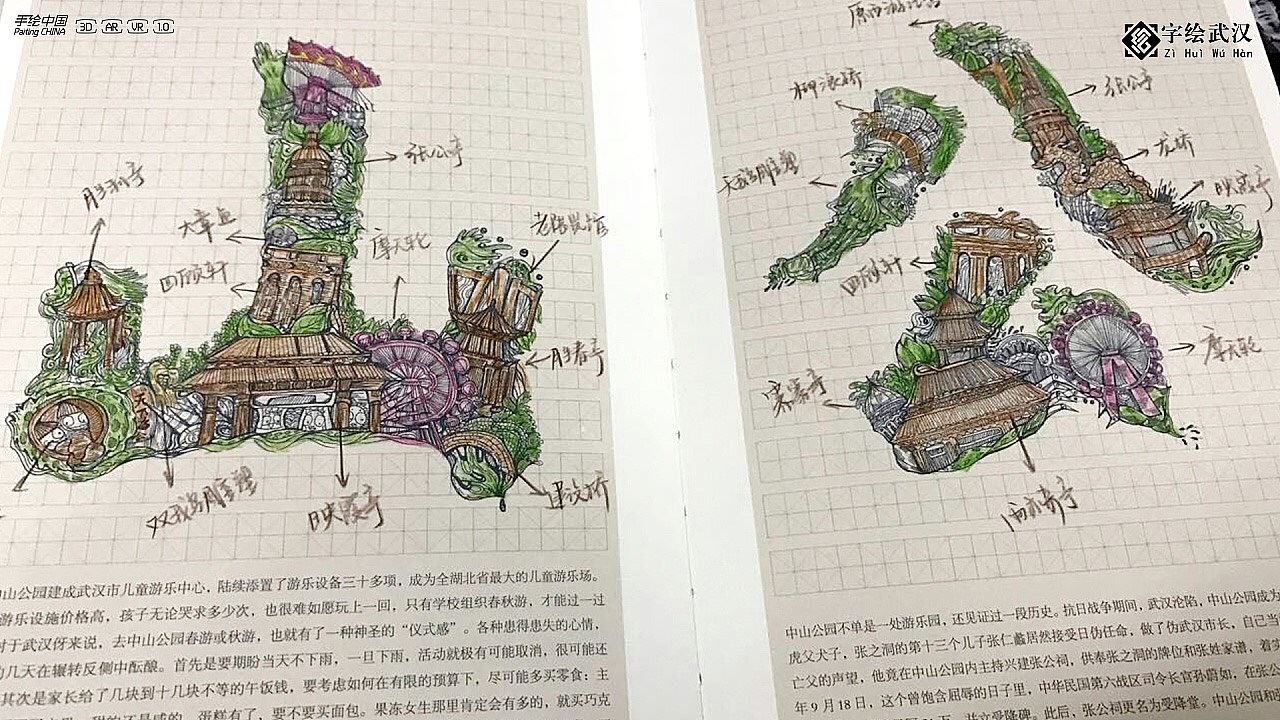 手绘中国
Painting CHINA
3D AR VR 1.0
字绘武汉
Zì Huì Wǔ Hàn
胜利亭
张公亭
大章鱼
摩天轮
四顾轩
映霞亭
柳浪桥
张公亭
龙桥
映霞亭
四顾轩
摩天轮
中山公园建成武汉市儿童游乐中心，陆续添置了游乐设备三十多项，成为全湖北省最大的儿童游乐场。
游乐设施价格高，孩子无论哭求多少次，也很难如愿玩上一回，只有学校组织春秋游，才能过一过
对于武汉伢来说，去中山公园春游或秋游，也就有了一种神圣的“仪式感”。各种患得患失的心情，
几天在辗转反侧中酝酿。首先是要期盼当天不下雨，一旦下雨，活动就极有可能取消，很可能还
其次是家长给了几块到十几块不等的午饭钱，要考虑如何在有限的预算下，尽可能多买零食：主
蛋糕有了，要不要买面包。果冻女生那里肯定会有多的，就买巧克
中山公园不单是一处游乐园，还见证过一段历史。抗日战争期间，武汉沦陷，中山公园成为
虎父犬子，张之洞的第十三个儿子张仁蠡居然接受日伪任命，做了伪武汉市长，自己当
亡父的声望，他竟在中山公园内主持兴建张公祠，供奉张之洞的牌位和张姓家谱，着
年9月18日，这个曾饱含屈辱的日子里，中华民国第六战区司令长官孙蔚如，在张公
并立受降碑。此后，张公祠更名为受降堂。中山公园和